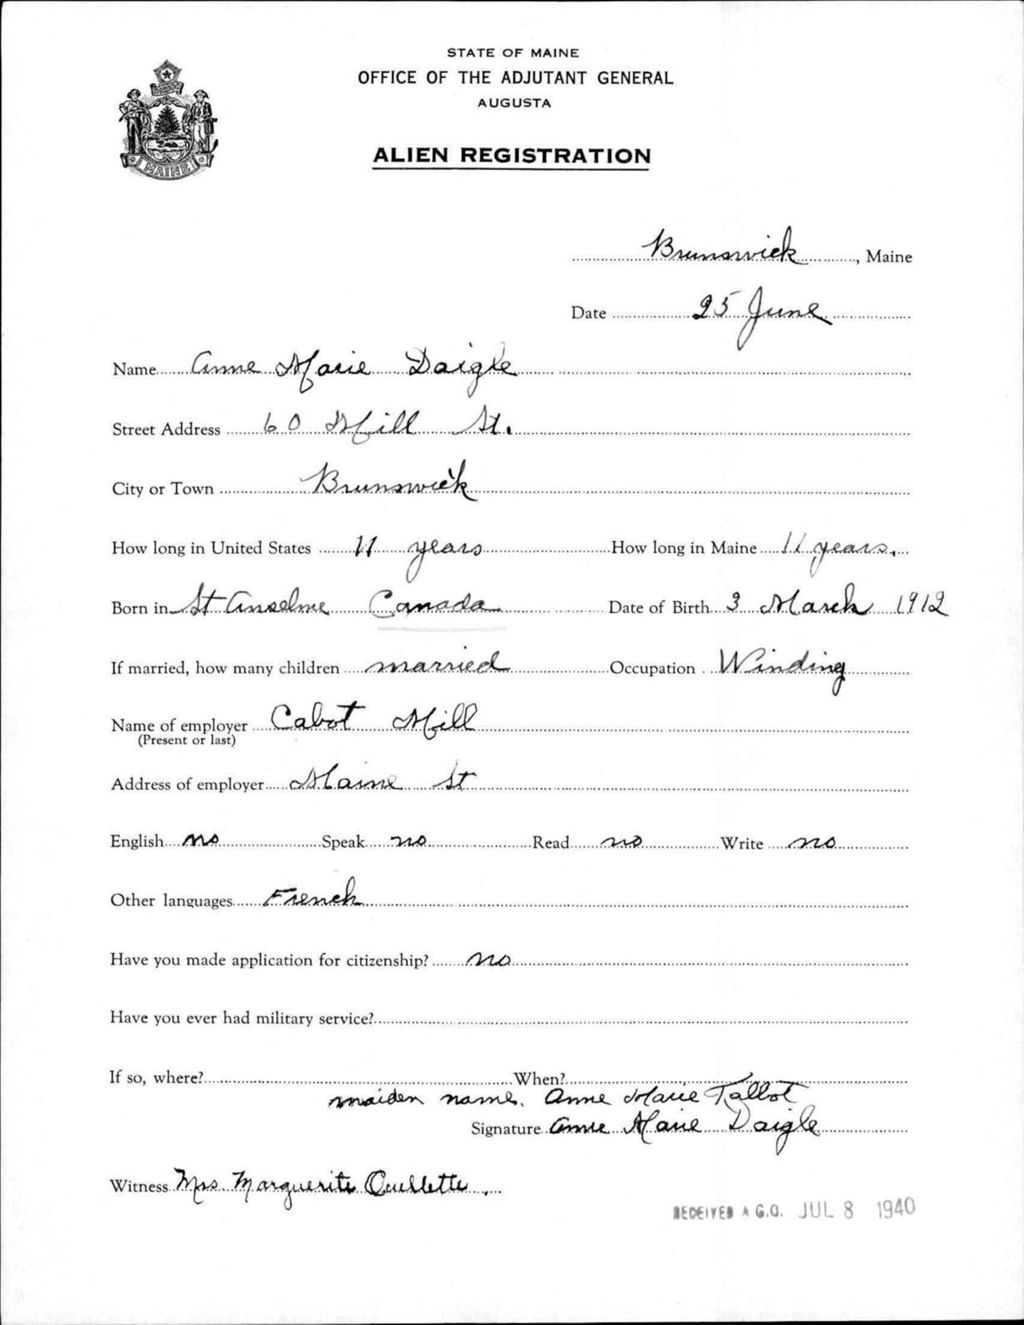 STATE OF MAINE
OFFICE OF THE ADJUTANT GENERAL
AUGUSTA
ALIEN REGISTRATION
MAINE
Brunswick, Maine
Date 25 June
Name Anne Marie Daigle
Street Address 60 Mill St.
City or Town Brunswick
How long in United States 11 years How long in Maine 11 years.
Born in St Anselme Canada Date of Birth 3 March 1912
If married, how many children married Occupation Winding
Name of employer Cabot Mill
(Present or last)
Address of employer Maine St
English no Speak no Read no Write no
Other languages French
Have you made application for citizenship? no
Have you ever had military service?
If so, where? When?
maiden name. Anne Marie Talbot
Signature Anne Marie Daigle
Witness Mrs. Marguerite Ouellette.
RECEIVED A.G.O. JUL 8 1940